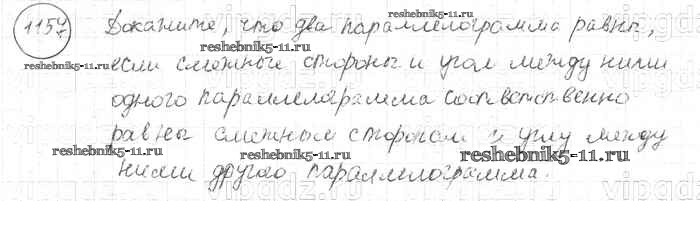 1157 Докажите, что два параллелограмма равны,
reshebnik5-11.ru
если смежные стороны и угол между ними
reshebnik5-11.ru
reshebnik5-11.ru
одного параллелограмма соответственно
равны смежным сторонам и углу между
reshebnik5-11.ru
reshebnik5-11.ru
ними другого параллелограмма.
reshebnik5-11.ru